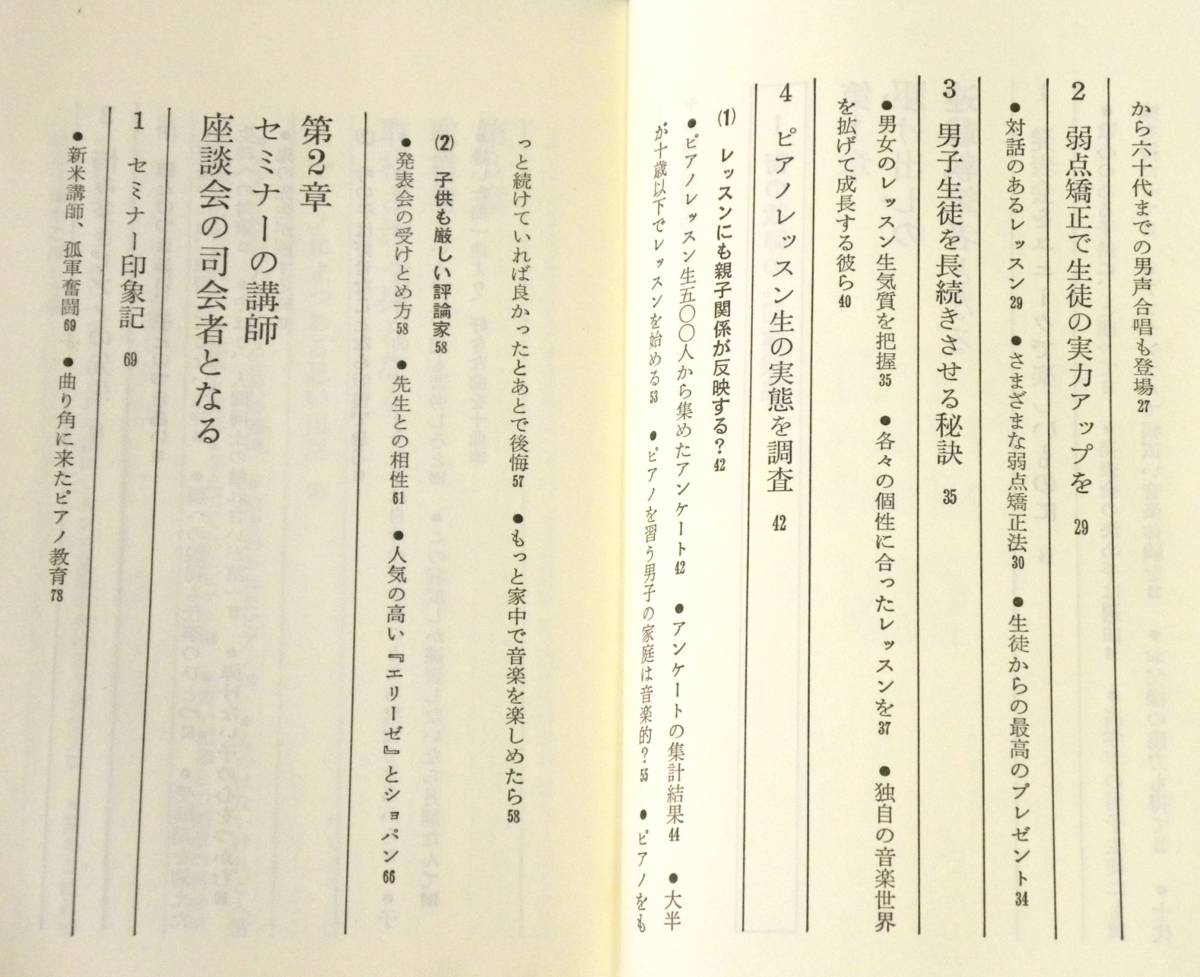 から六十代までの男声合唱も登場27
2 弱点矯正で生徒の実力アップを 29
●対話のあるレッスン29 ●さまざまな弱点矯正法30 ●生徒からの最高のプレゼント34
3 男子生徒を長続きさせる秘訣 35
●男女のレッスン生気質を把握35 ●各々の個性に合ったレッスンを37 ●独自の音楽世界
を拡げて成長する彼ら40
4 ピアノレッスン生の実態を調査 42
(1) レッスンにも親子関係が反映する？42
●ピアノレッスン生五〇〇人から集めたアンケート42 ●アンケートの集計結果44 ●大半
が十歳以下でレッスンを始める53 ●ピアノを習う男子の家庭は音楽的？55 ●ピアノをも
っと続けていれば良かったとあとで後悔57 ●もっと家中で音楽を楽しめたら58
(2) 子供も厳しい評論家58
●発表会の受けとめ方58 ●先生との相性61 ●人気の高い『エリーゼ』とショパン66
第2章
セミナーの講師
座談会の司会者となる
1 セミナー印象記 69
●新米講師、孤軍奮闘69 ●曲り角に来たピアノ教育78